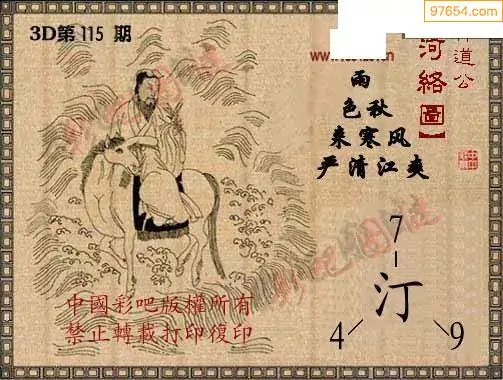 97654.com
3D第 115 期
道公
河絡
【圖】
雨
色秋
来寒风
严清江爽
彩吧图谜
彩吧图谜
7
汀
4
9
中國彩吧版權所有
禁止轉載打印復印